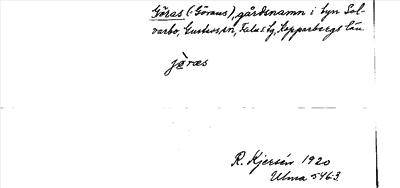 Göras (-Görans), gårdsnamn i byn Sol-
varbo, Gustafs sn, Falu tg, Kopparbergs län.
jöræs
R. Hjersén 1920
Ulma 5463.